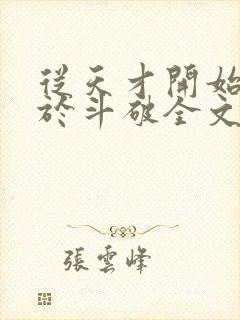 從天才開始
於斗破全文
張雲峰